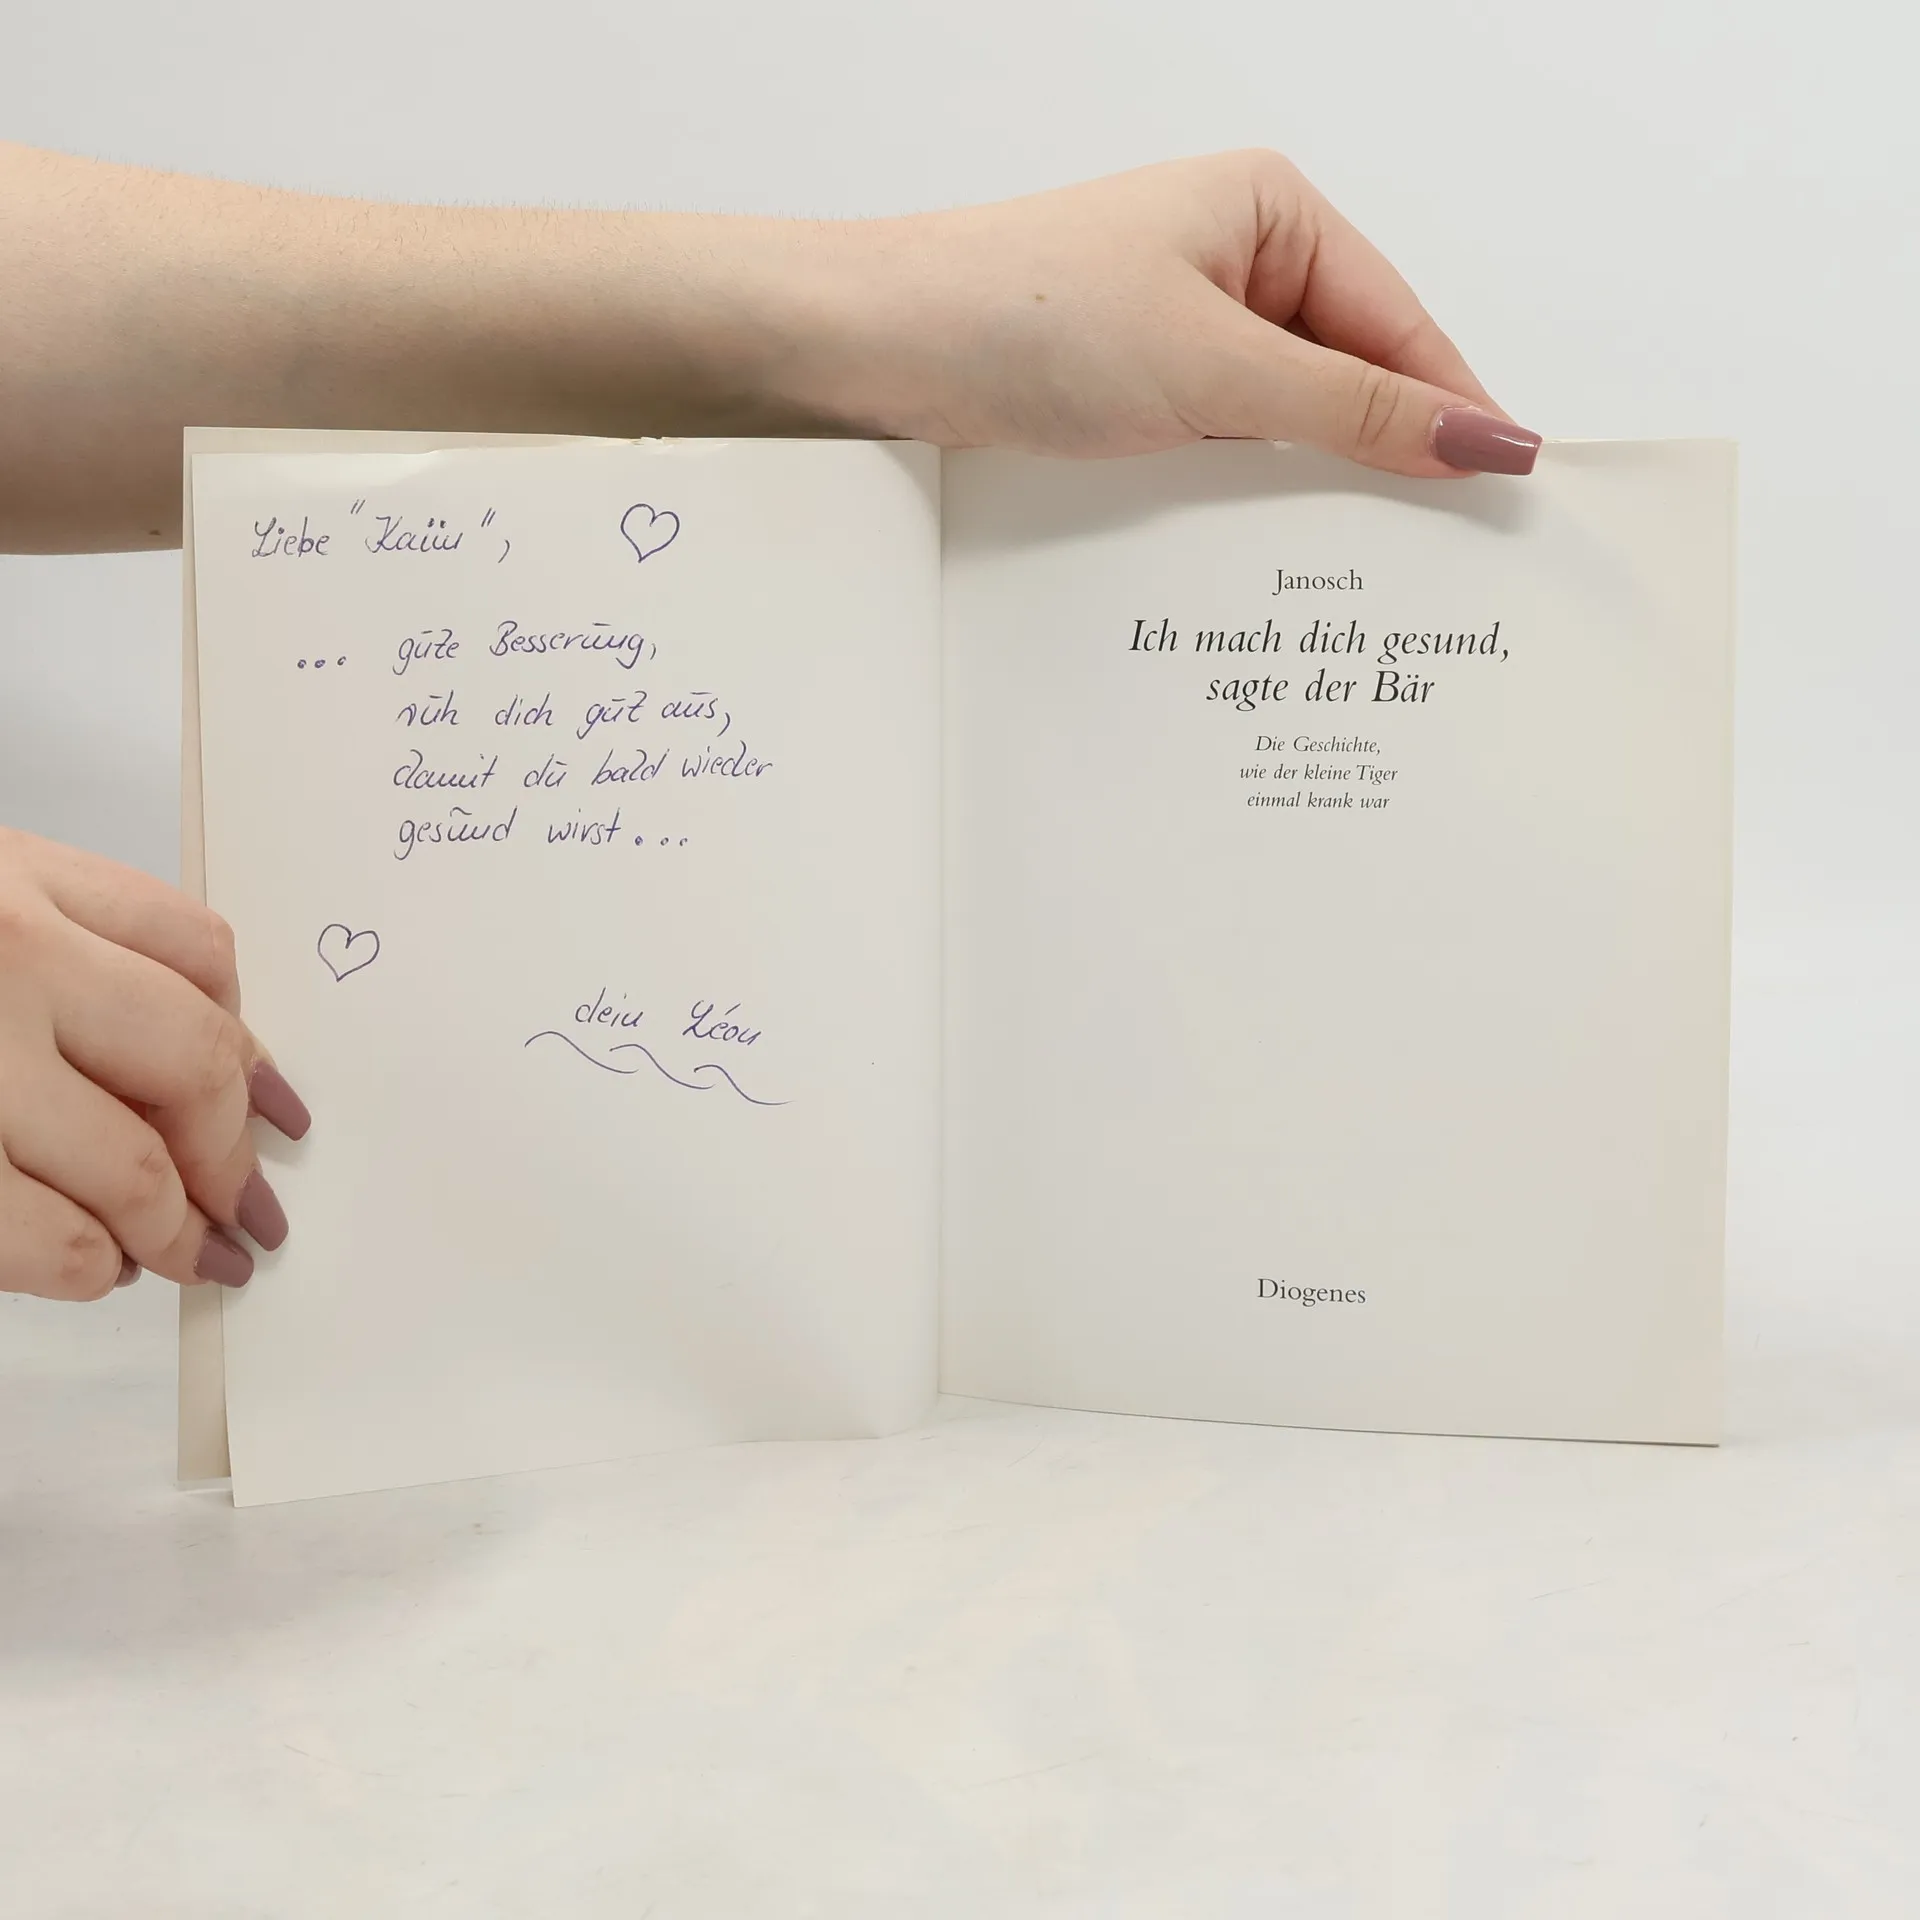 Liebe "Kaiiu",
... gute Besserung,
ruh dich gut aus,
damit du bald wieder
gesund wirst...
dein Léon
Janosch
Ich mach dich gesund,
sagte der Bär
Die Geschichte,
wie der kleine Tiger
einmal krank war
Diogenes